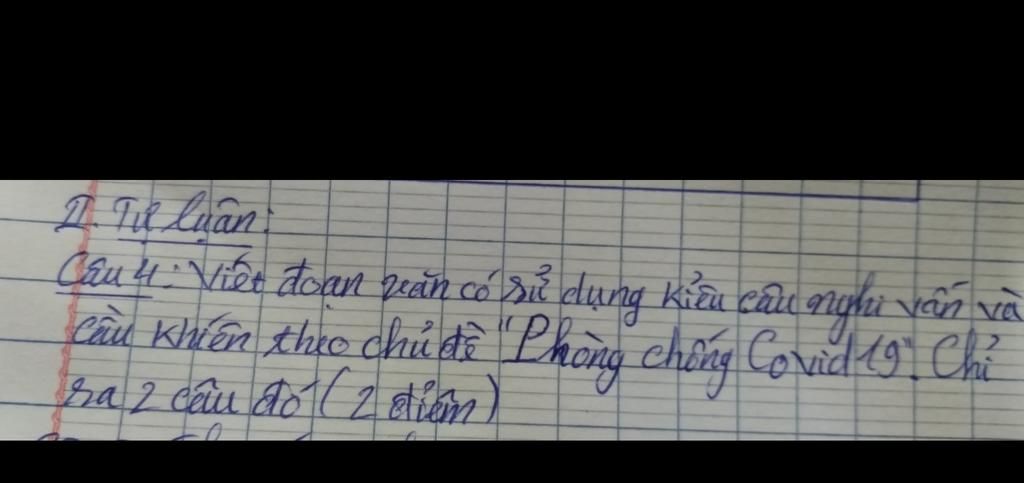 II. Tự luận:
Câu 4: Viết đoạn văn có sử dụng kiểu câu nghi vấn và
cầu khiến theo chủ đề "Phòng chống Covid 19". Chỉ
ra 2 câu đó (2 điểm)